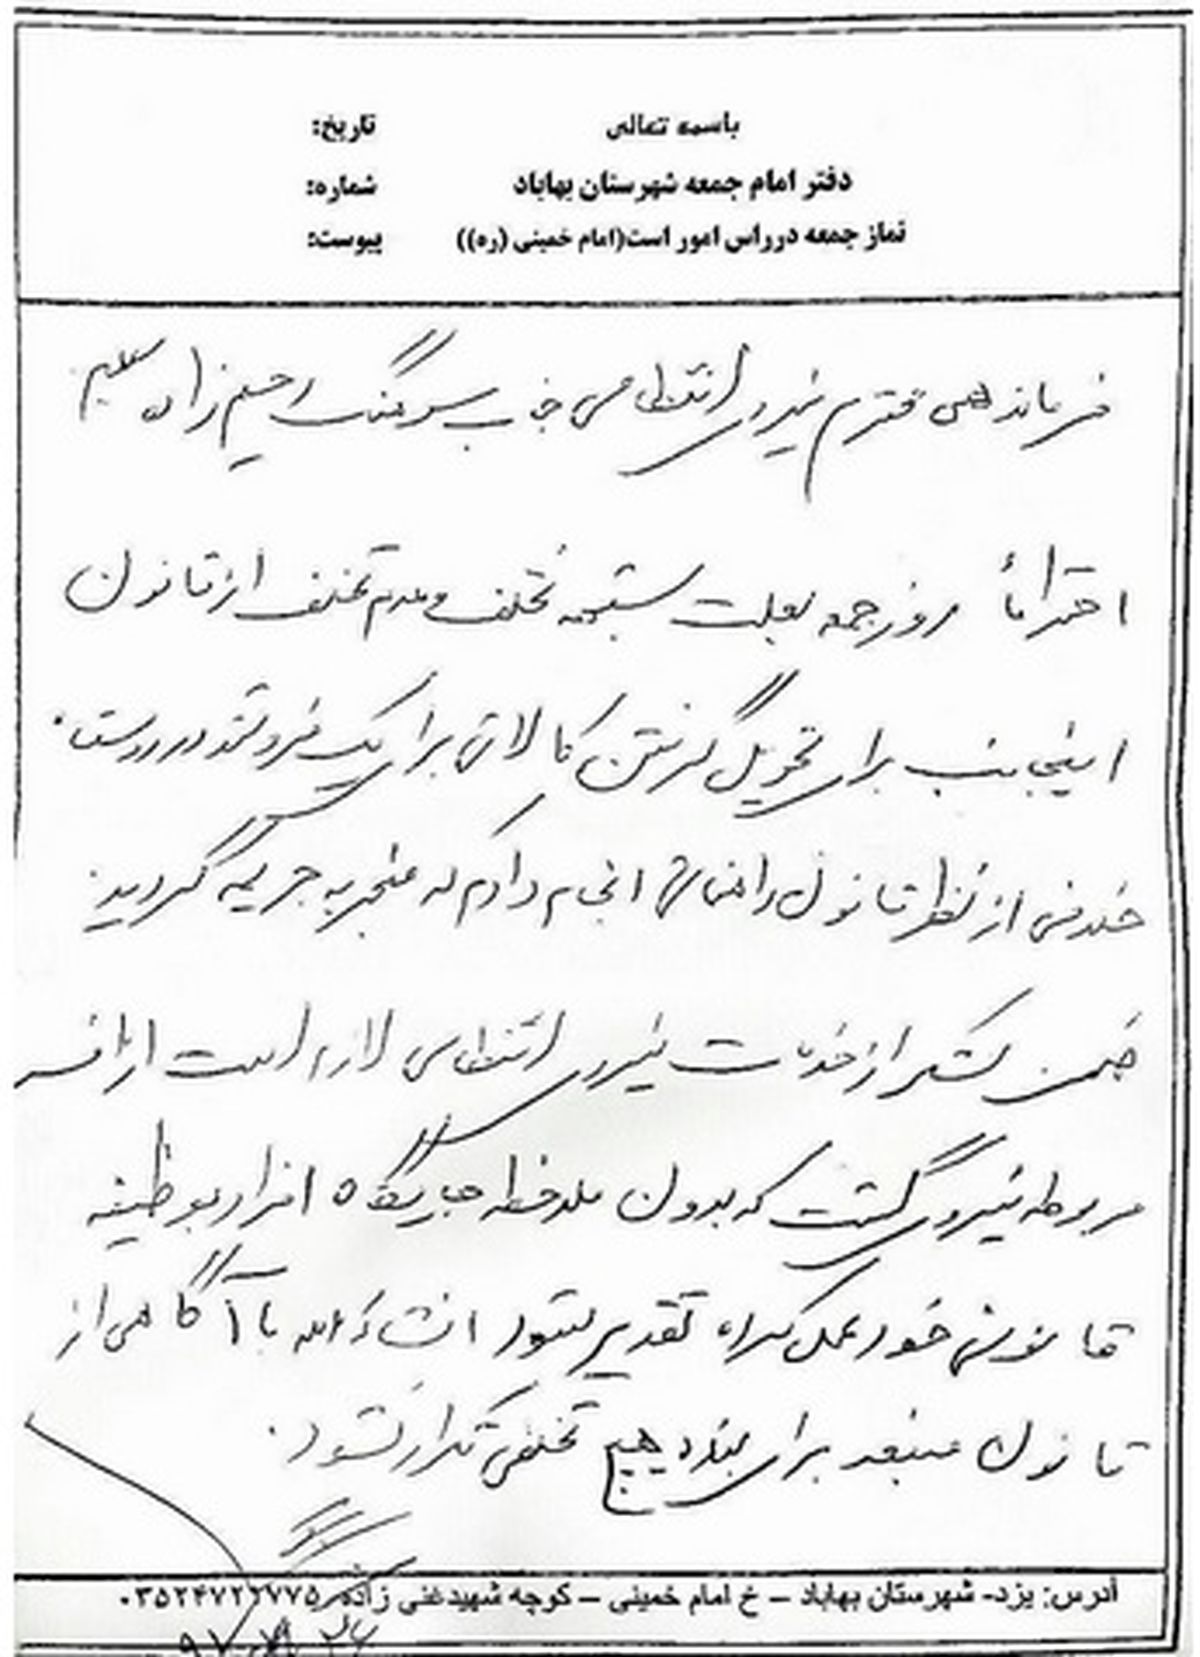 باسمه تعالی
دفتر امام جمعه شهرستان بهاباد
نماز جمعه درراس امور است(امام خمینی (ره))
تاریخ:
شماره:
پیوست:
فرماندهی محترم نیروی انتظامی جناب سرهنگ رحیم زاده
احتراماً روز جمعه بعلت شبهه تخلف و عدم تخلف از قانون
اینجانب برای تحویل گرفتن کالائی برای یک فروشنده در روستا
خلافی از نظر قانون راهنمائی انجام دادم که منجر به جریمه گردید
ضمن تشکر از خدمات نیروی انتظامی لازم است از افسر
مربوطه نیروی گشت که بدون ملاحظه جایگاه افراد بوظیفه
قانونی خود عمل کرده تقدیر بشود انشاءالله با آگاهی از
قانون منبعد برای بنده هیچ تخلفی تکرار نشود.
آدرس: یزد- شهرستان بهاباد – خ امام خمینی – کوچه شهیدغنی زاده
۹۷